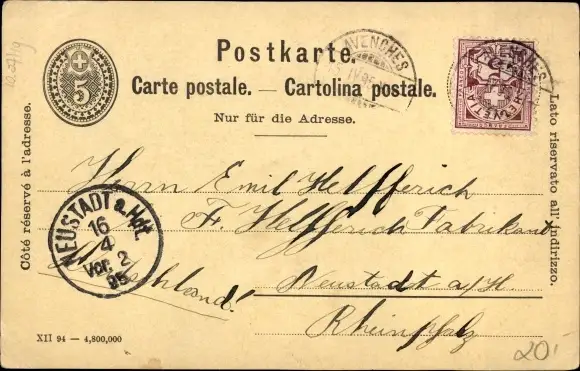 Postkarte.
Carte postale. — Cartolina postale.
Nur für die Adresse.
5
Côté réservé à l'adresse.
Lato riservato all'indirizzo.
AVENCHES
IV. 95
AVENCHES
HELVETIA
Herrn Emil Helfferich
Fr. Helfferich Fabrikant
Neustadt a/H.
Rheinpfalz
Deutschland!
NEUSTADT a. Hdt.
16
4
Vor. 2
95
XII 94 — 4,800,000
20.-